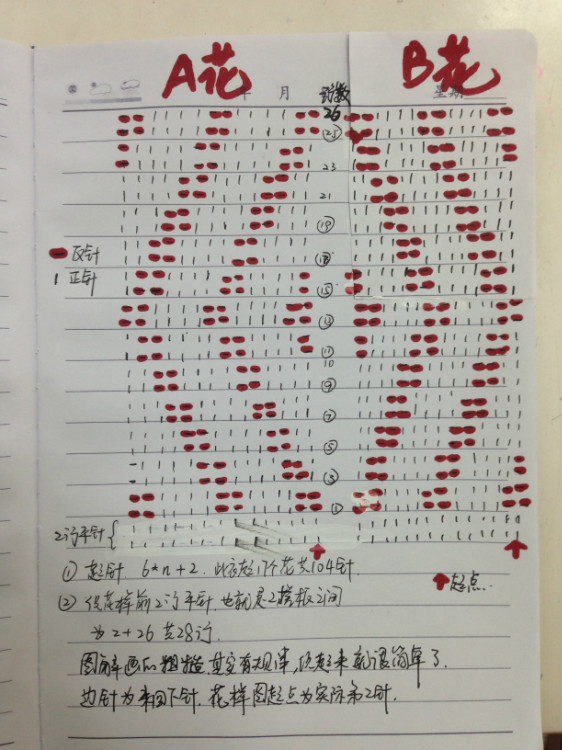 A花 B花
年 月 行数 星期
26
㉕
23
21
⑲
一 反针
| 正针
⑮
⑬
⑪
10
⑨
⑦
⑤
③
①
2行平针{
① 起针. 6*n+2. 此衣起17个花共104针.
起点..
② 假花样前2行平针, 也就是2横板之间
为 2+26 共28行.
图解画的粗糙, 其实有规律, 织起来就很简单了.
边针为来回下针, 花样图起点为实际第2针.